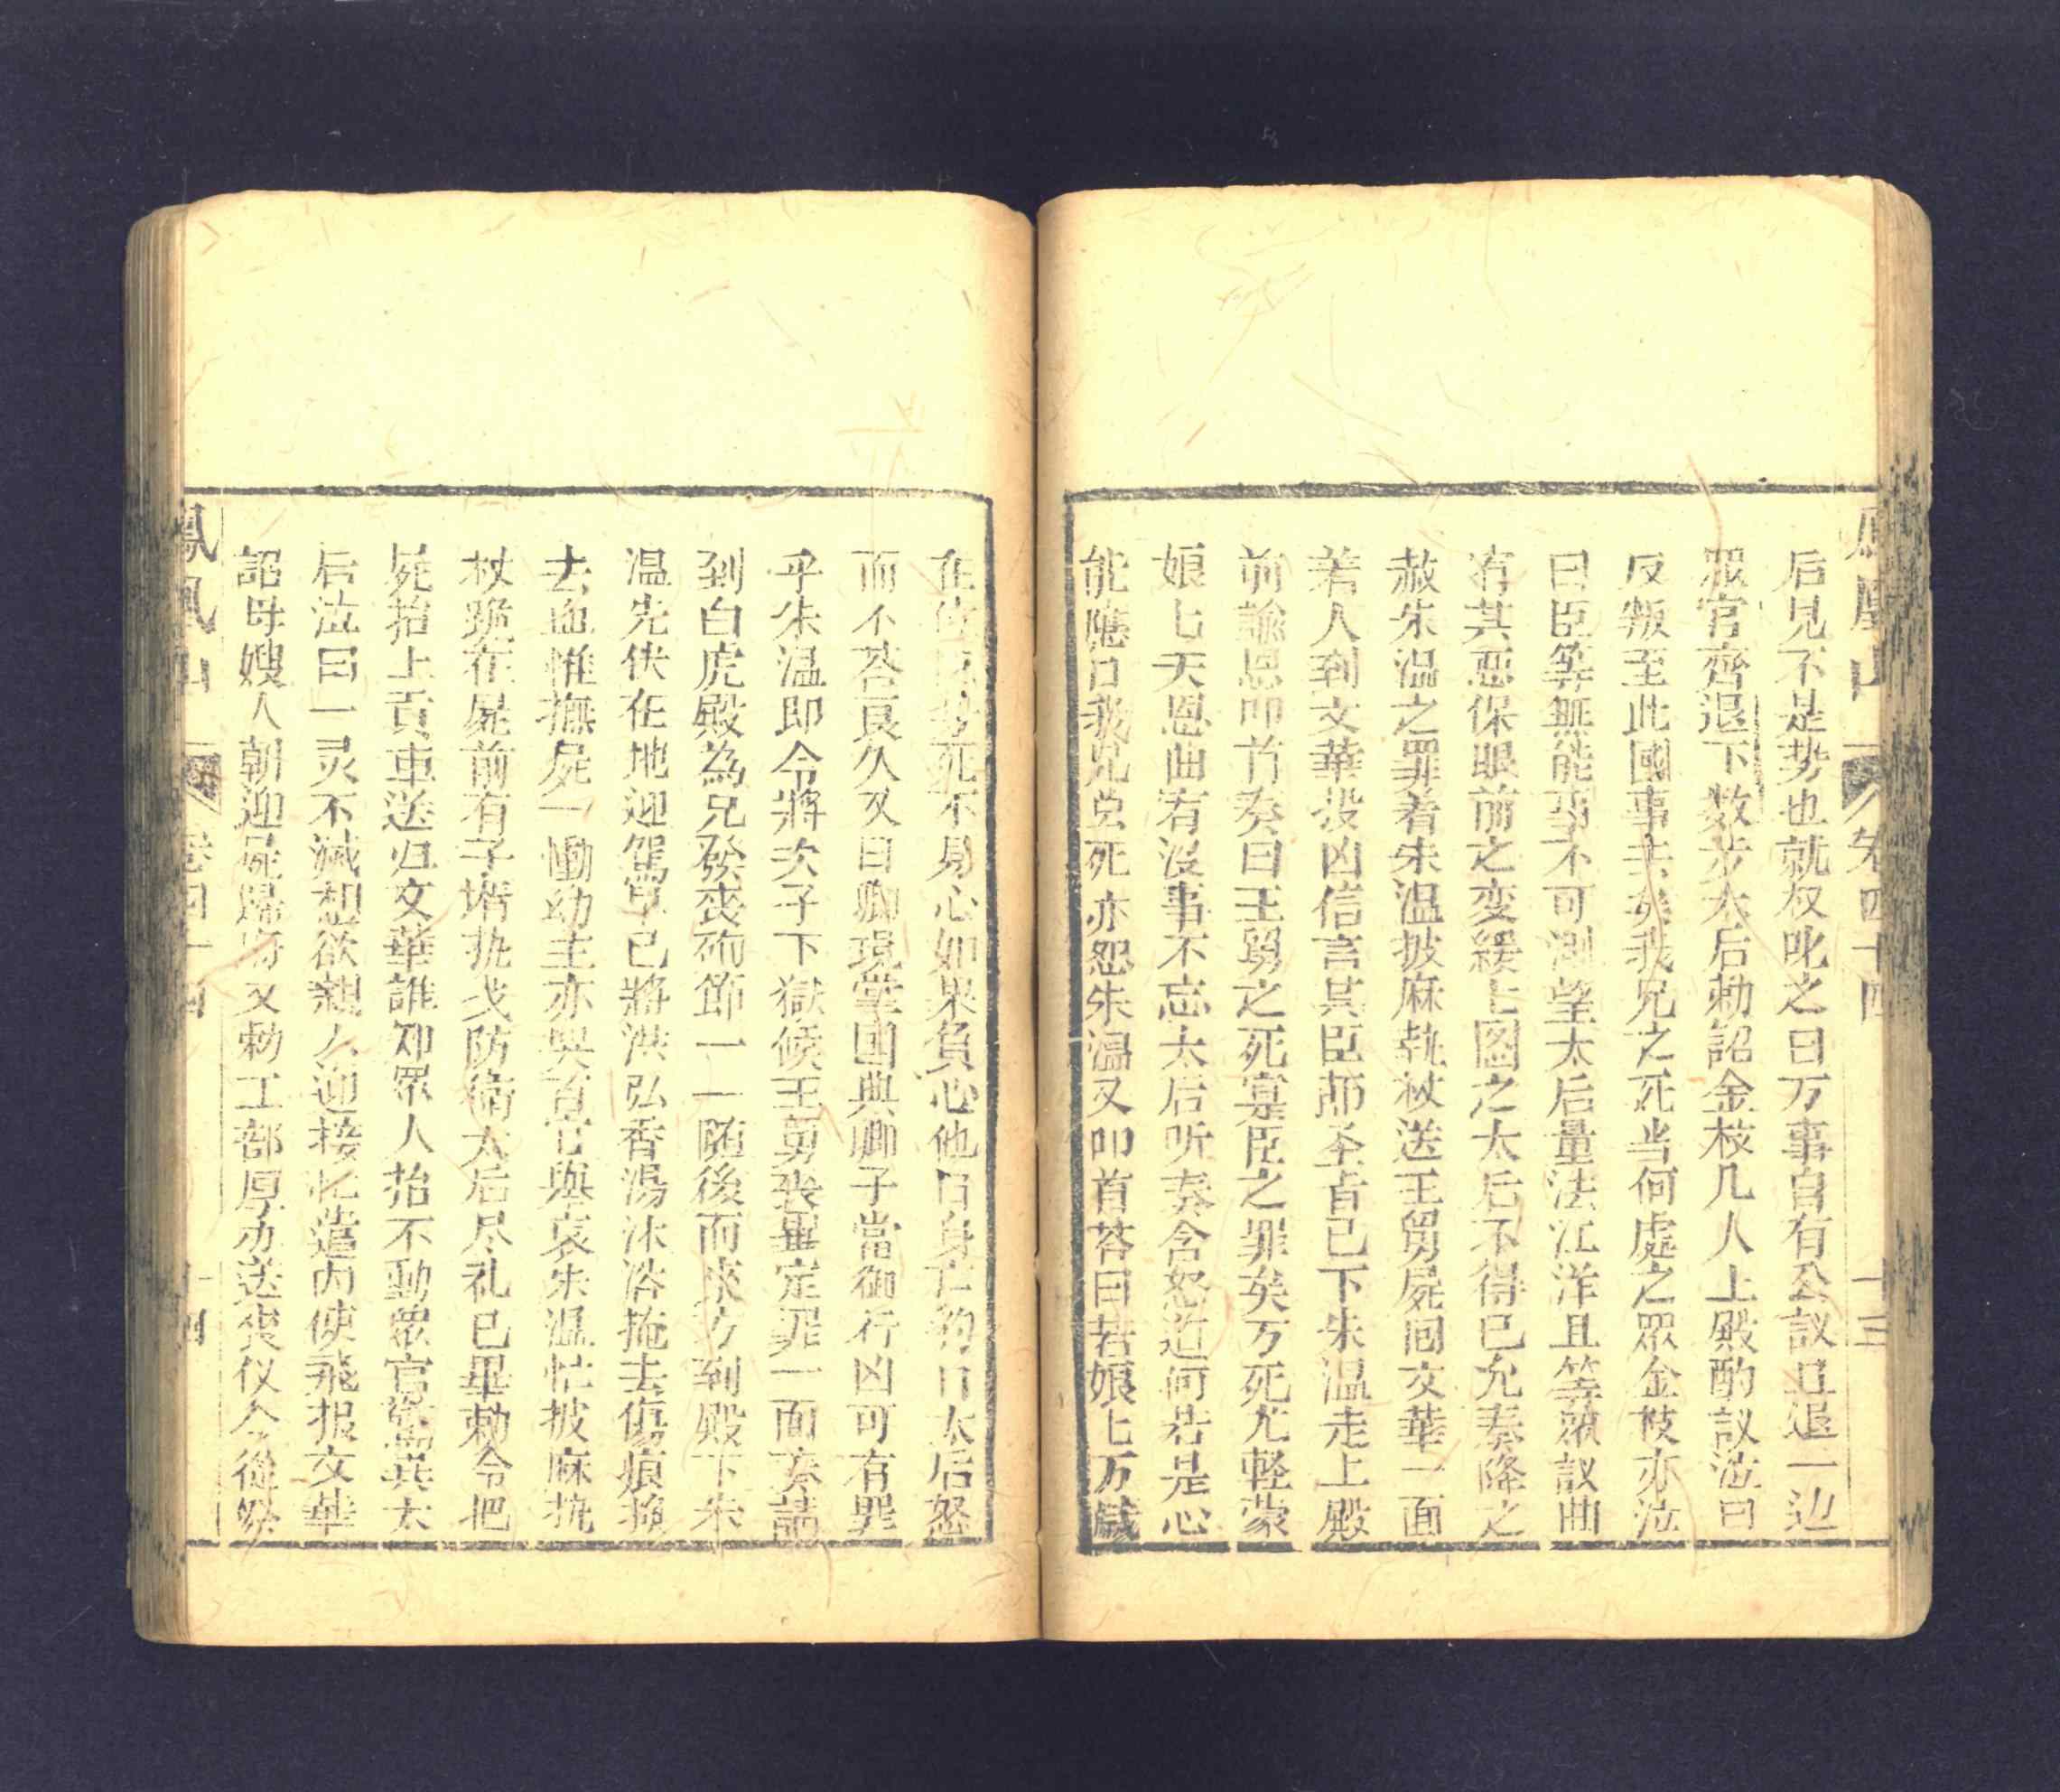 鳳凰山 卷四十四 十三
后見不是势也就权叱之曰万事自有公議且退一边
眾官齊退下数步太后勅詔金枝几人上殿酌議泣曰
反叛至此國事去矣我兄之死当何處之眾金枝亦泣
曰臣等無能事不可測望太后量法江洋且等眾議曲
宥其惡保眼前之変緩七图之太后不得已允奏降之
赦朱温之罪着朱温披麻執杖送王舅屍囘文華一面
着人到文華投凶信言其臣節圣旨已下朱温走上殿
前謝恩叩首奏曰王舅之死寔臣之罪矣万死尤軽蒙
娘七天恩曲宥没事不忘太后听奏含怒道何苦是心
能應口我兄兰死亦怨朱温又叩首荅曰若娘七万歲
在位臣势死不易心如果負心他日身亡狗口太后怒
而不荅良久又曰卿現掌國典卿子當御行凶可有罪
乎朱温即令將次子下獄候王舅喪畢定罪一面奏請
到白虎殿為兄發喪砌節一一随後而來方到殿下朱
温先伏在地迎駕早已將洪弘香湯沐浴掩去傷痕換
去血帷撫屍一慟幼主亦哭百官舉哀朱温忙披麻执
杖跪在屍前有子壻执戈防衛太后尽礼已畢勅令把
屍抬上貢車送归文華誰知眾人抬不動眾官驚異太
后泣曰一灵不滅想欲親人迎接忙遣内使飛报文華
詔母嫂人朝迎屍歸府又勅工部厚办送喪仪仝從祭
鳳凰山 卷四十四 十四